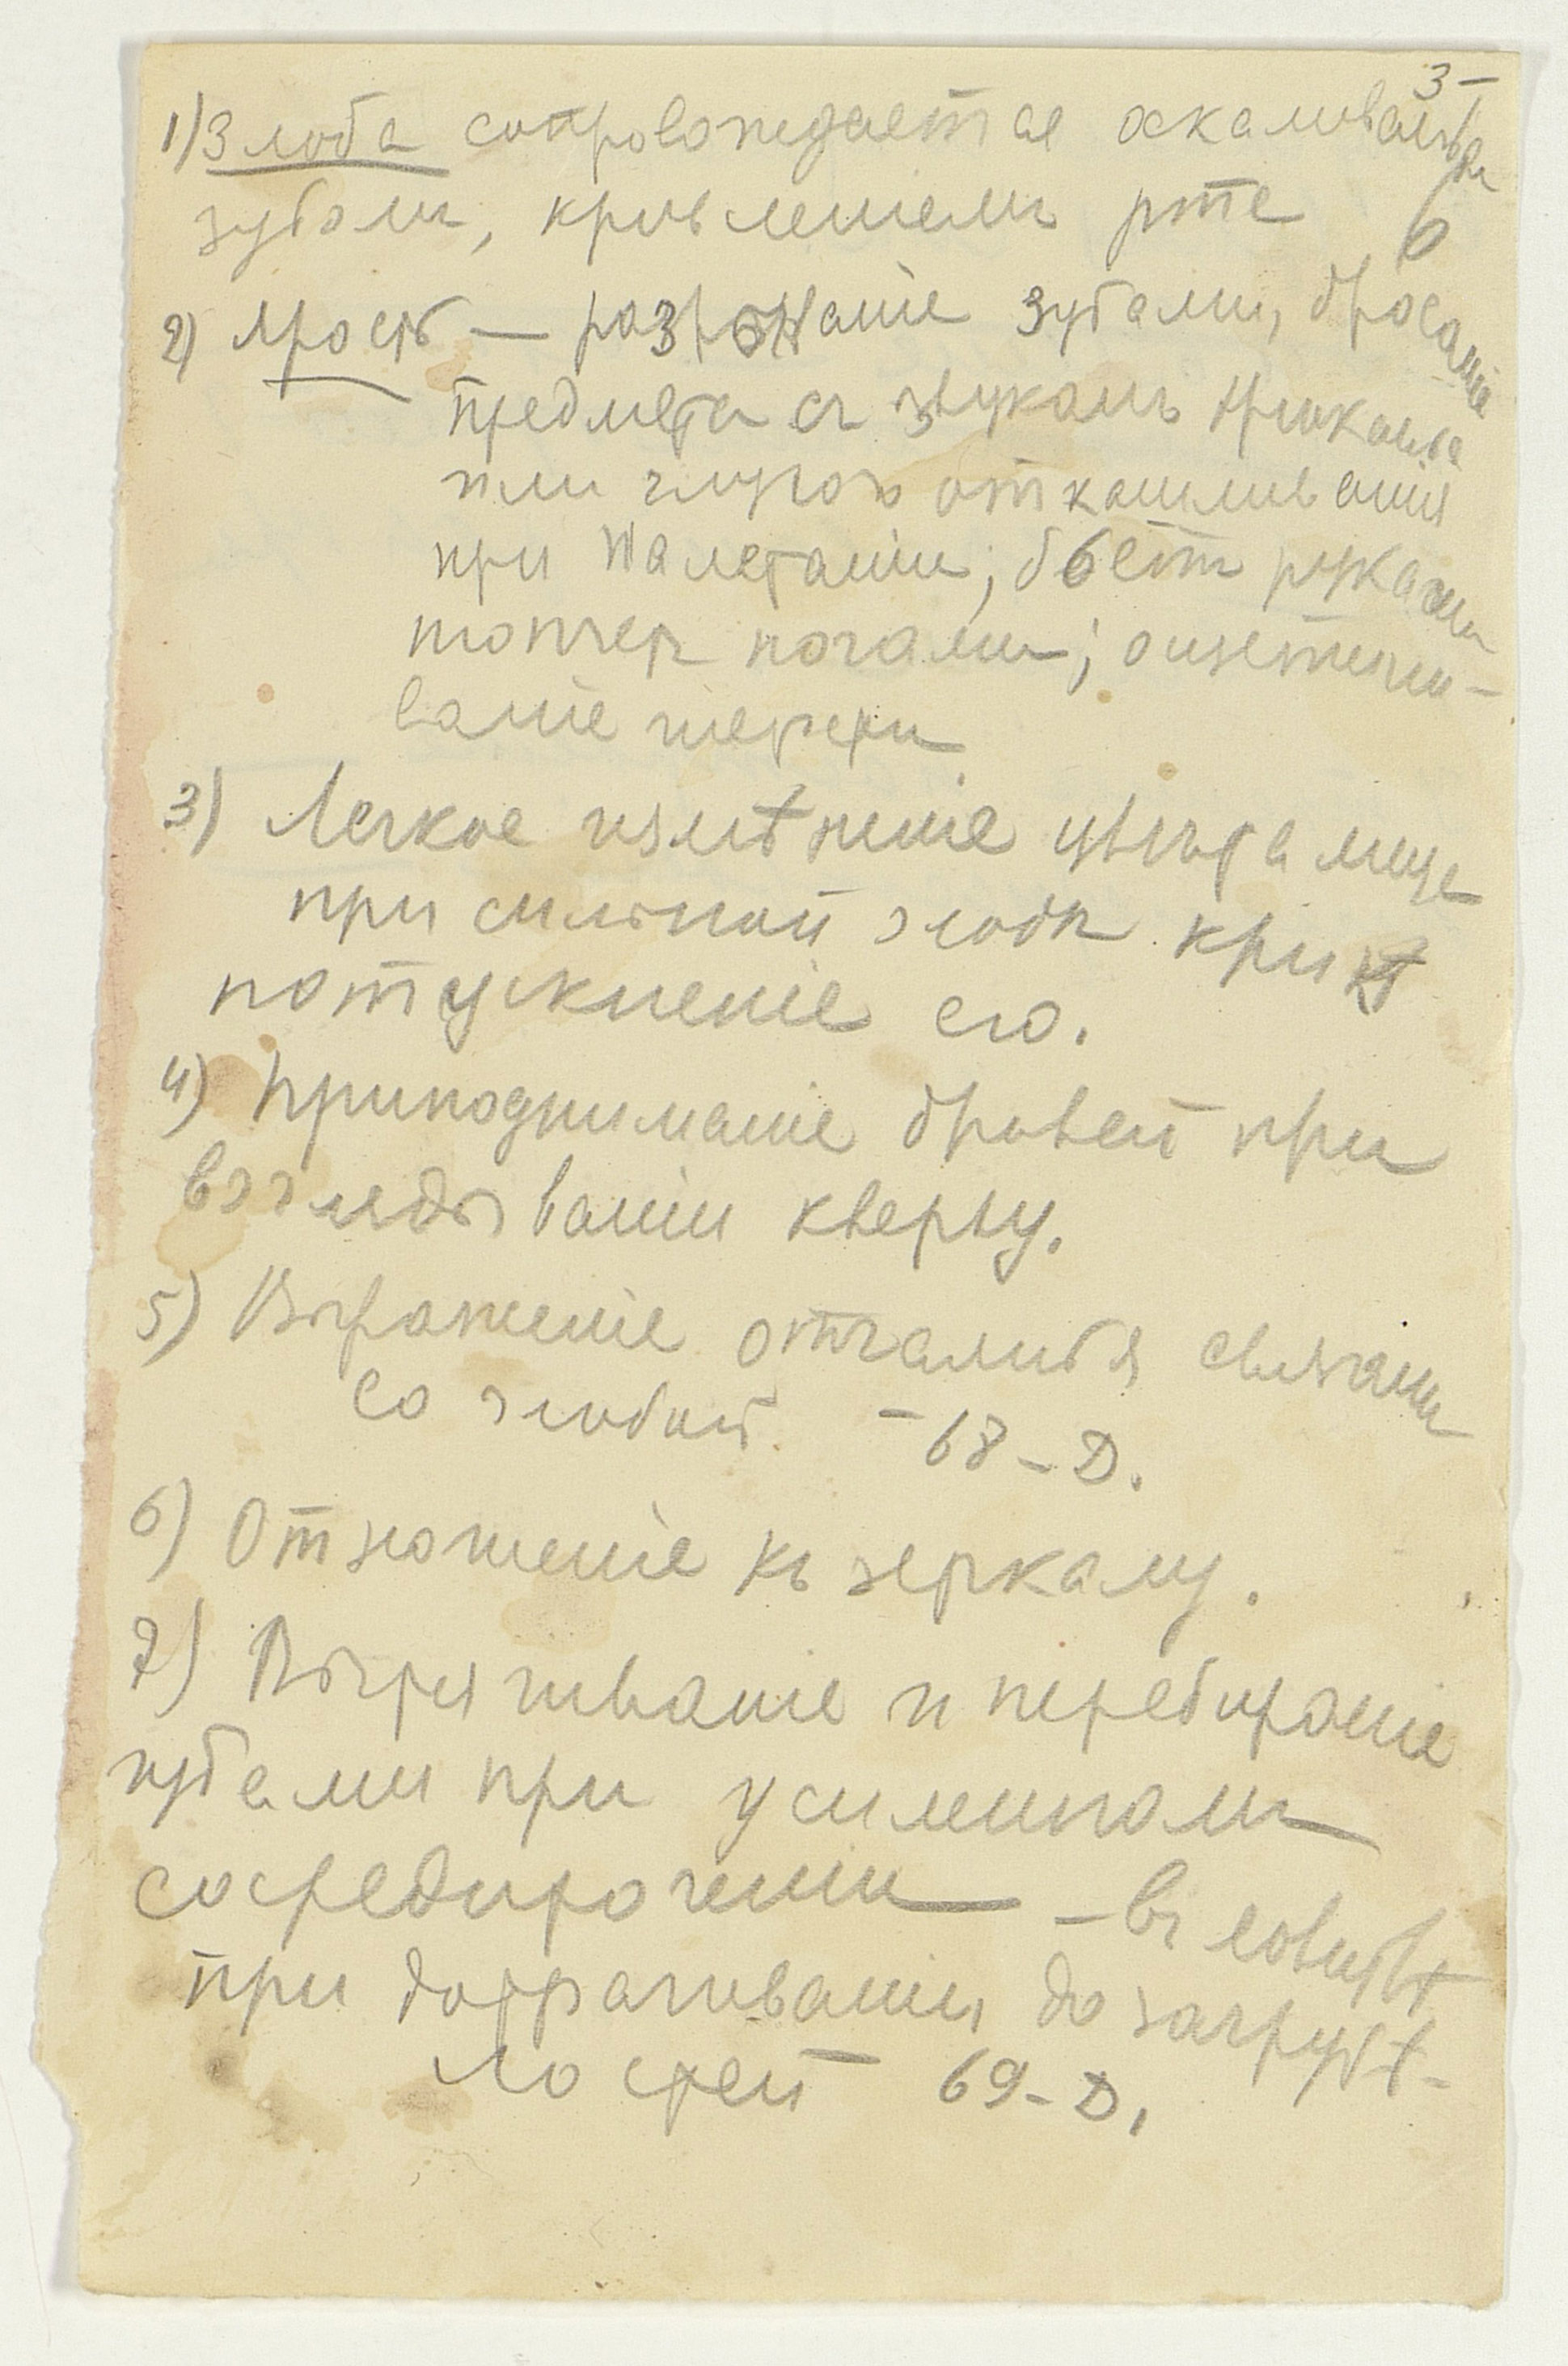 3-
1) Злоба сопровождается оскаливаньем
зубовъ, кривленіемъ рта
6
2) Ярость — разгрызаніе зубами, бросаніе
предмета съ звукомъ
или глухого откашливанія
при налетаніи; бьетъ руками
топчетъ ногами; ощетини-
ваніе шерсти
3) Легкое измѣненіе цвѣта лица
при сильной злобѣ крикѣ
потускненіе его.
4) Приподниманіе бровей при
взглядываніи кверху.
5) Выраженіе отчаянія связаны
со злобой. - 68 - D.
6) Отношеніе къ зеркалу.
7) Вытягиваніе и перебираніе
губами при усиленномъ
сосредоточеніи — въ
при дотрагиваніи до загрубѣ-
лостей 69 - D.